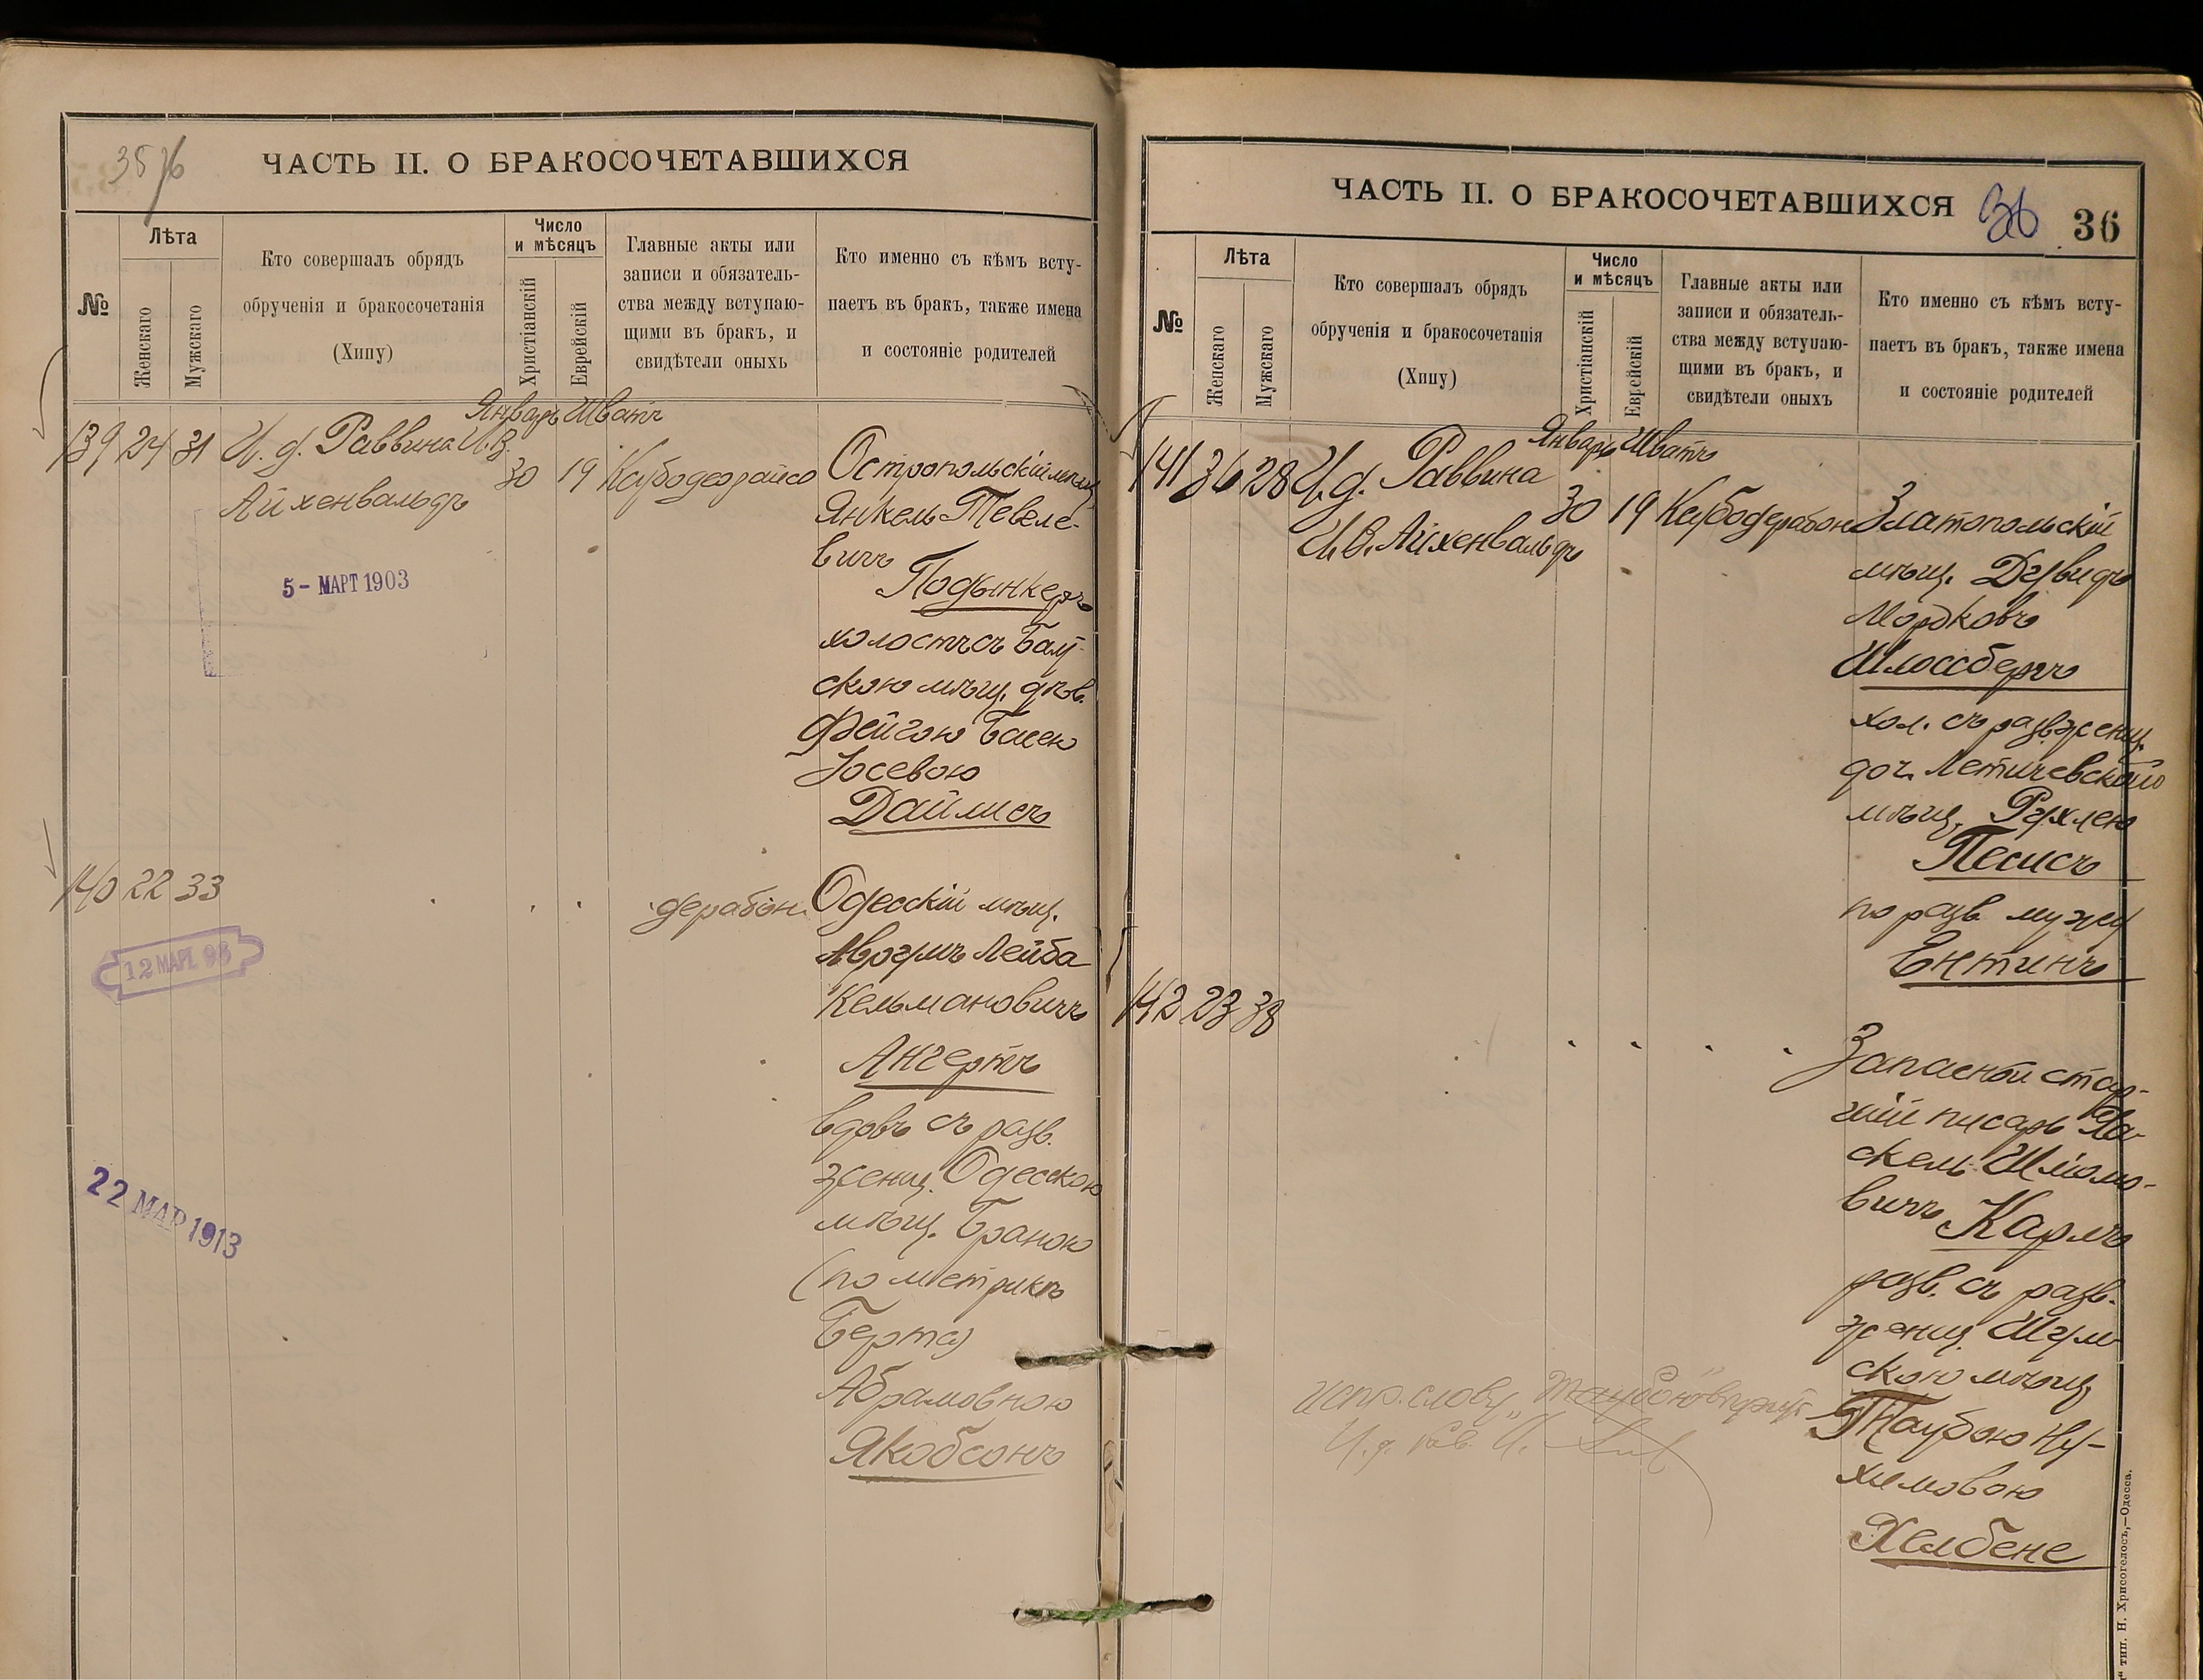 35 36
ЧАСТЬ II. О БРАКОСОЧЕТАВШИХСЯ
№
Лѣта
Женскаго
Мужскаго
Кто совершалъ обрядъ
обрученія и бракосочетанія
(Хипу)
Число
и мѣсяцъ
Христіанскій
Еврейскій
Главные акты или
записи и обязатель-
ства между вступаю-
щими въ бракъ, и
свидѣтели оныхъ
Кто именно съ кѣмъ всту-
паетъ въ бракъ, также имена
и состояніе родителей
Январь Шватъ
139 24 31 И. д. Раввина И. В.
Айхенвальдъ
30 19
5 - МАРТ 1903
Остропольскій мѣщ.
Янкель Тевеле-
вичъ
Подынкеръ
холостъ съ Бау-
скою мѣщ. дѣв.
Фейгою Басею
Іосевою
Даймисъ
140 22 33
12 МАР. 98
22 МАР 1913
дерабон.
Одесскій мѣщ.
Авrумъ Лейба
Кельмановичъ
Ангертъ
вдовъ съ разв.
женщ. Одесскою
мѣщ. Браною
(по метрикѣ
Берта)
Абрамовною
Якобсонъ
ЧАСТЬ II. О БРАКОСОЧЕТАВШИХСЯ
36 36
№
Лѣта
Женскаго
Мужскаго
Кто совершалъ обрядъ
обрученія и бракосочетанія
(Хипу)
Число
и мѣсяцъ
Христіанскій
Еврейскій
Главные акты или
записи и обязатель-
ства между вступаю-
щими въ бракъ, и
свидѣтели оныхъ
Кто именно съ кѣмъ всту-
паетъ въ бракъ, также имена
и состояніе родителей
Январь Шватъ
141 36 28 И. д. Раввина
И. В. Айхенвальдъ
30 19
Златопольскій
мѣщ. Дувидъ
Мордковъ
Шлоссбергъ
хол. съ разв. женщ.
доч. Летичевскаго
мѣщ. Рухлею
Песисъ
по разв. мужу
Ентинъ
142 23 38
Запасной стар-
шій писарь Ха-
скель Шлiомо-
вичъ Карлъ
разв. съ разв.
женщ. Шум-
скою мѣщ
Таубою Ну-
химовою
Хелбене
испр. слову „Таубою" вѣрить
И. д. рав. И.
тип. Н. Хрисогелосъ,—Одесса.